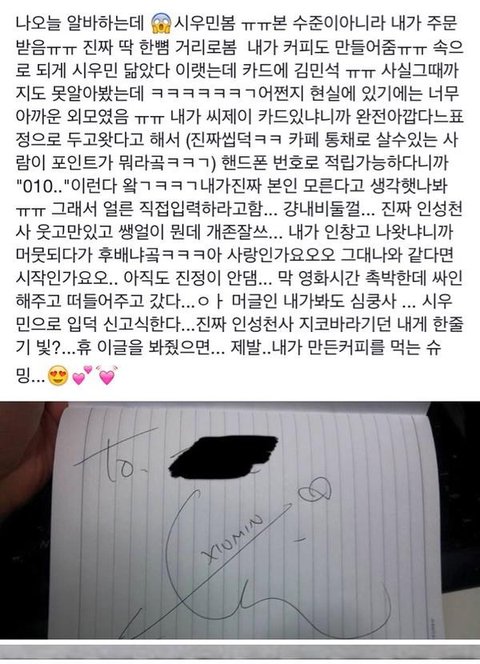 나오늘 알바하는데 😱시우민봄 ㅠㅠ본 수준이아니라 내가 주문
받음ㅠㅠ 진짜 딱 한뼘 거리로봄  내가 커피도 만들어줌ㅠㅠ 속으
로 되게 시우민 닮았다 이랬는데 카드에 김민석 ㅠㅠ 사실그때까
지도 못알아봤는데 ㅋㅋㅋㅋㅋㅋㄱ어쩐지 현실에 있기에는 너무
아까운 외모였음 ㅠㅠ 내가 씨제이 카드있냐니까 완전아깝다느표
정으로 두고왓다고 해서 (진짜씹덕ㅋㅋ 카페 통채로 살수있는 사
람이 포인트가 뭐라곸ㅋㅋㄱ) 핸드폰 번호로 적립가능하다니까
"010.."이런다 왘ㄱㅋㅋㄱ내가진짜 본인 모른다고 생각햇나봐
ㅠㅠ 그래서 얼른 직접입력하라고함... 걍내비둘껄... 진짜 인성천
사 웃고만있고 쌩얼이 뭔데 개존잘쓰... 내가 인창고 나왓냐니까
머뭇되다가 후배냐곸ㅋㅋㅋ아 사랑인가요오오 그대나와 같다면
시작인가요오.. 아직도 진정이 안댐... 막 영화시간 촉박한데 싸인
해주고 떠들어주고 갔다...ㅇㅏ 머글인 내가봐도 심쿵사 ... 시우
민으로 입덕 신고식한다...진짜 인성천사 지코바라기던 내게 한줄
기 빛?...휴 이글을 봐줬으면... 제발..내가 만든커피를 먹는 슈
밍...😍💕💓
To.
XIUMIN